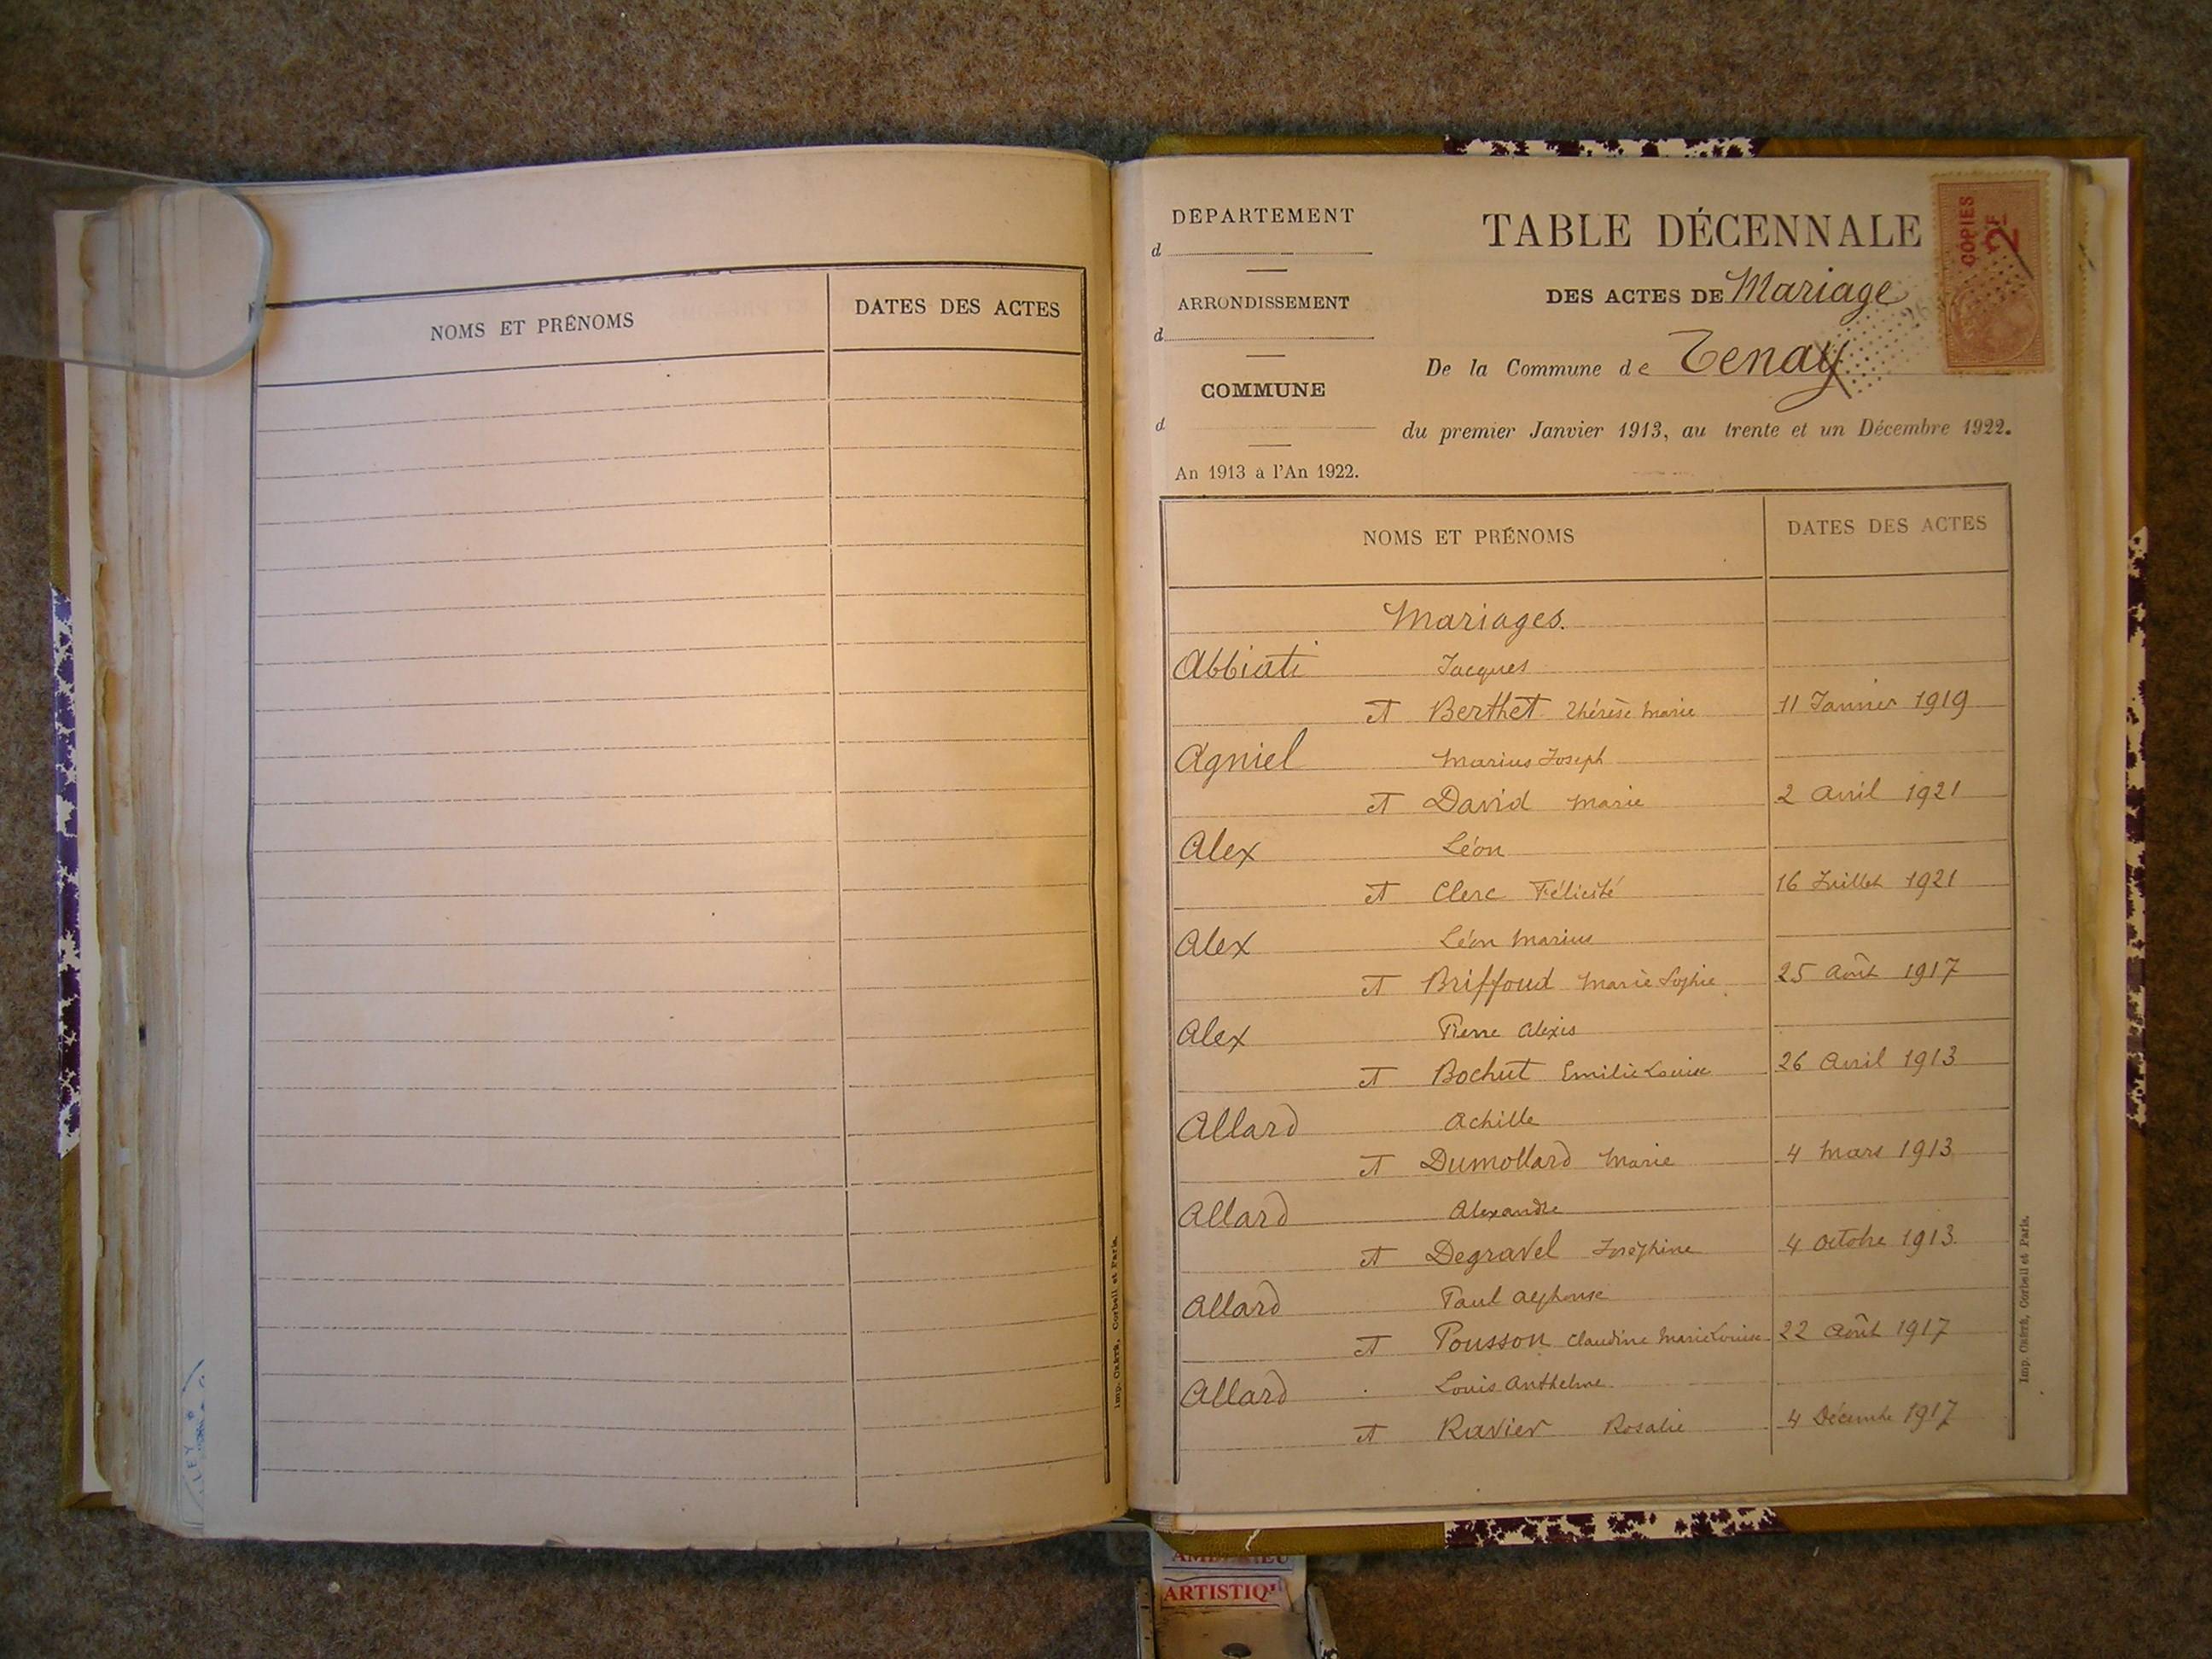 NOMS ET PRÉNOMS
DATES DES ACTES
Imp. CRÉTÉ, Corbeil et Paris.
DÉPARTEMENT
d
ARRONDISSEMENT
d
COMMUNE
d
An 1913 à l'An 1922.
TABLE DÉCENNALE
DES ACTES DE Mariage
De la Commune de Tenay
du premier Janvier 1913, au trente et un Décembre 1922.
COPIES
2F
NOMS ET PRÉNOMS
DATES DES ACTES
Mariages.
Abbiati Jacques
et Berthet Thérèse Marie 11 Janvier 1919
Agniel Marius Joseph
et David Marie 2 Avril 1921
Alex Léon
et Clerc Félicité 16 Juillet 1921
Alex Léon Marius
et Briffoud Marie Sophie 25 Août 1917
Alex Pierre Alexis
et Bochut Emilie Louise 26 Avril 1913
Allard Achille
et Dumollard Marie 4 Mars 1913
Allard Alexandre
et Degravel Joséphine 4 Octobre 1913.
Allard Paul Alphonse
et Pousson Claudine Marie Louise 22 Août 1917
Allard Louis Anthelme
et Ravier Rosalie 4 Décembre 1917
Imp. CRÉTÉ, Corbeil et Paris.
ARTISTIQ